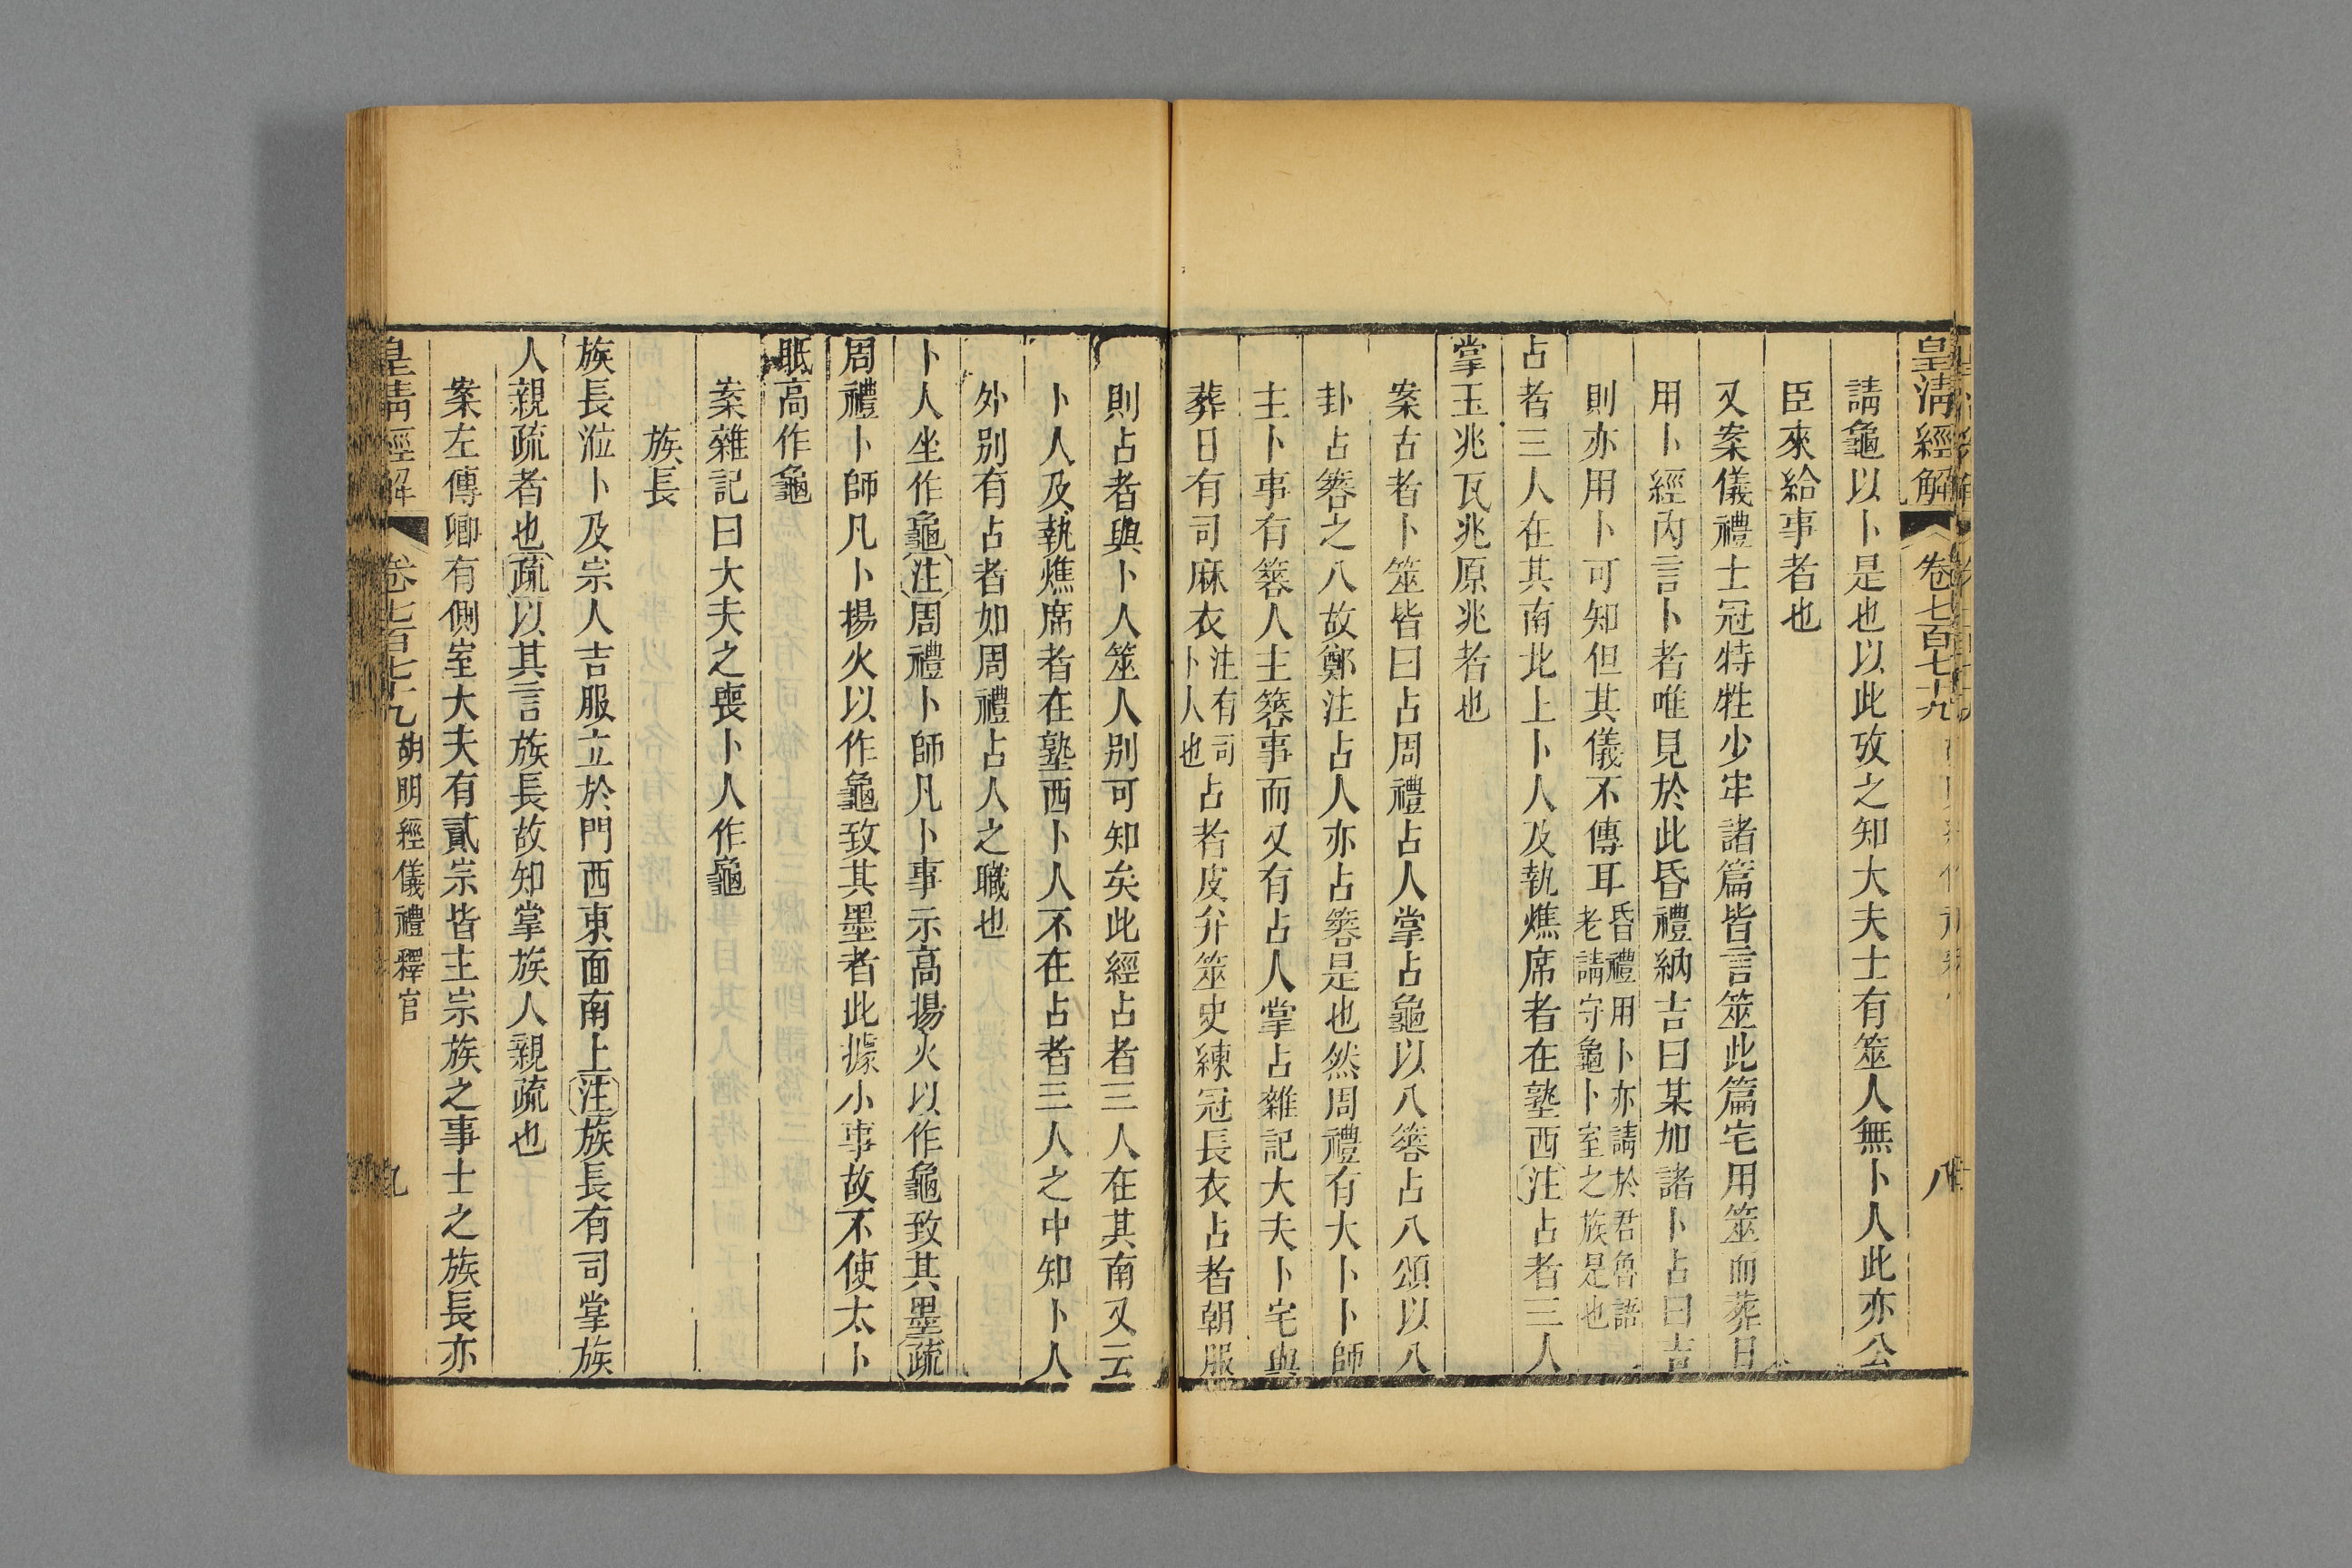 皇淸經解 卷七百七十九 八
請龜以卜是也以此攷之知大夫士有筮人無卜人此亦公
臣來給事者也
又案儀禮士冠特牲少牢諸篇皆言筮此篇宅用筮而葬日
用卜經內言卜者唯見於此昏禮納吉曰某加諸卜占曰吉
則亦用卜可知但其儀不傳耳昏禮用卜亦請於君魯語老請守龜卜室之族是也
占者三人在其南北上卜人及執燋席者在塾西注占者三人
掌玉兆瓦兆原兆者也
案古者卜筮皆曰占周禮占人掌占龜以八簭占八頌以八
卦占簭之八故鄭注占人亦占簭是也然周禮有大卜卜師
主卜事有簭人主簭事而又有占人掌占雜記大夫卜宅與
葬日有司麻衣注有司卜人也占者皮弁筮史練冠長衣占者朝服
則占者與卜人筮人別可知矣此經占者三人在其南又云
卜人及執燋席者在塾西卜人不在占者三人之中知卜人
外别有占者如周禮占人之職也
卜人坐作龜注周禮卜師凡卜事示高揚火以作龜致其墨疏
周禮卜師凡卜揚火以作龜致其墨者此據小事故不使太卜
眡高作龜
案雜記曰大夫之喪卜人作龜
族長
族長涖卜及宗人吉服立於門西東面南上注族長有司掌族
人親疏者也疏以其言族長故知掌族人親疏也
案左傳卿有側室大夫有貳宗皆主宗族之事士之族長亦
皇淸經解 卷七百七十九 胡明經儀禮釋官 九